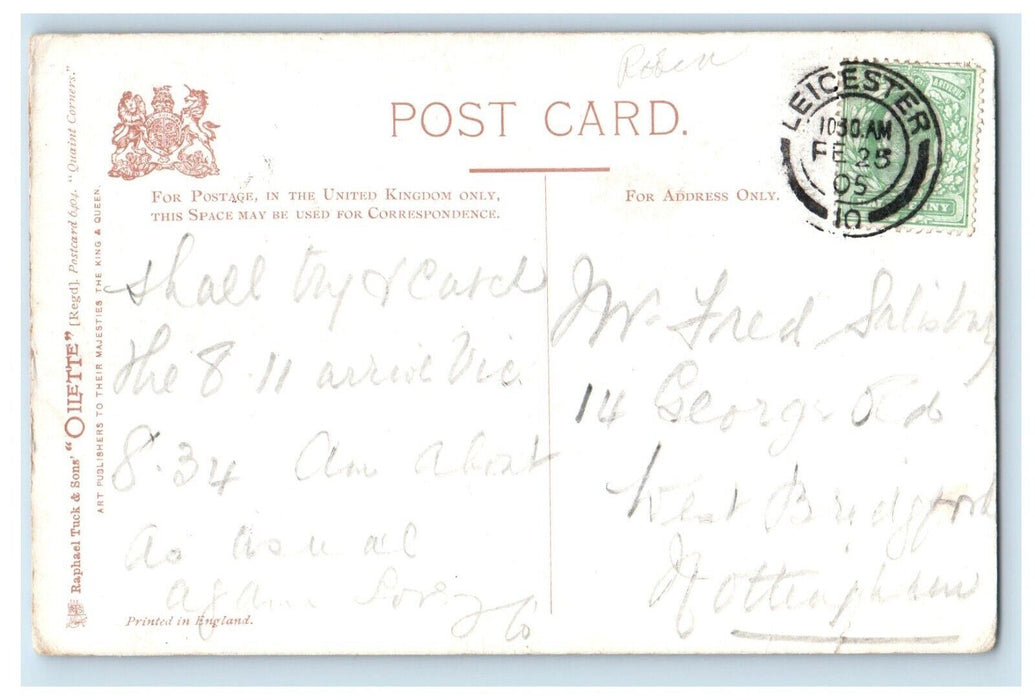 Roben
POST CARD.
FOR POSTAGE, IN THE UNITED KINGDOM ONLY,
THIS SPACE MAY BE USED FOR CORRESPONDENCE.
FOR ADDRESS ONLY.
LEICESTER
10 30. AM
FE 25
05
10
Shall try & catch
the 8.11 arrive Vic
8.34 Am about
as usual
again
Mr Fred Salisbury
14 George Rd
West Bridgford
Nottingham
Printed in England.
Raphael Tuck & Sons' "OILETTE" [Regd]. Postcard 6404. "Quaint Corners."
ART PUBLISHERS TO THEIR MAJESTIES THE KING & QUEEN.